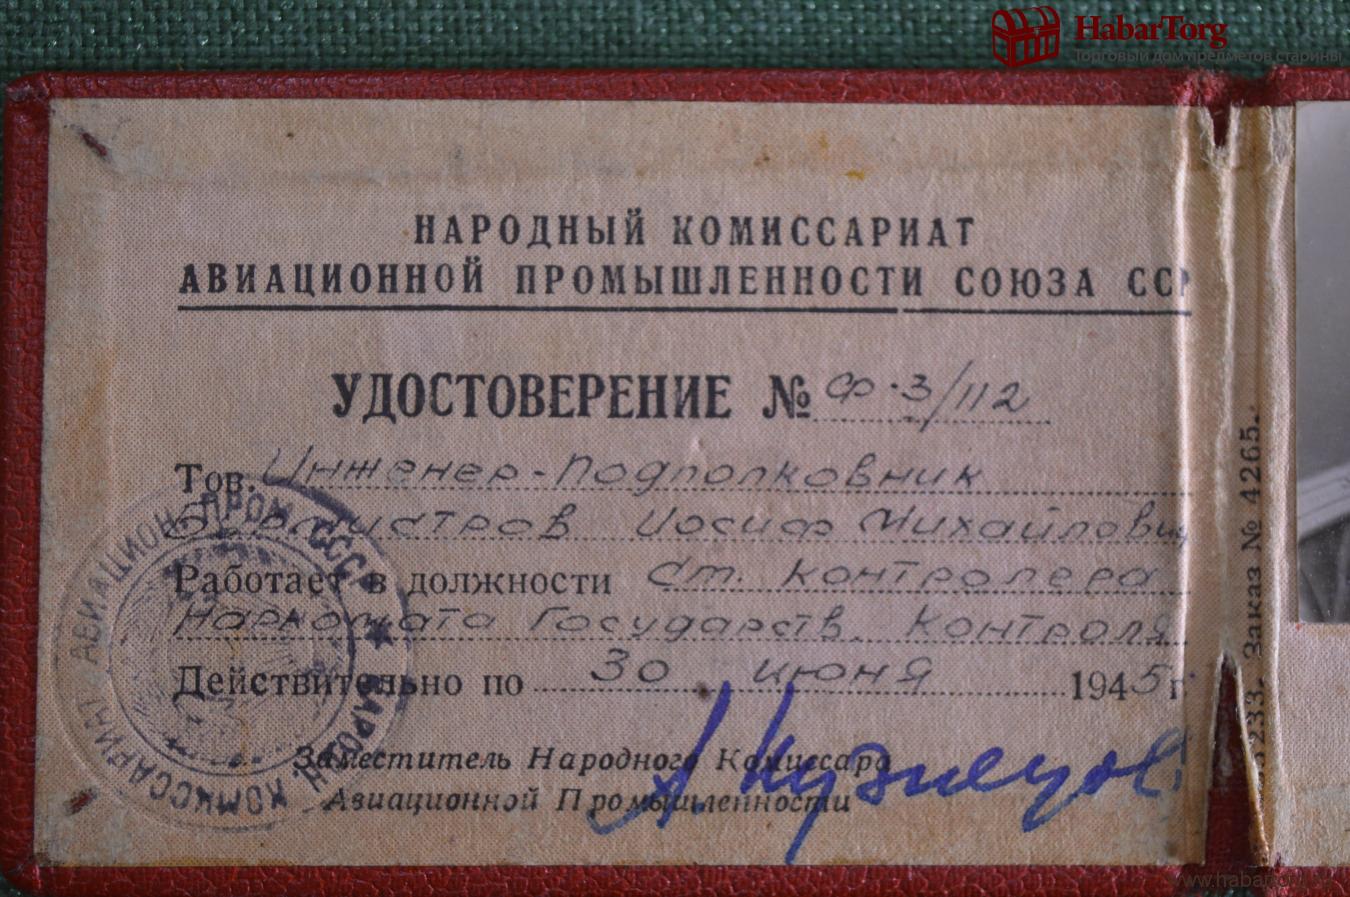 HabarTorg
Торговый дом предметов старины
НАРОДНЫЙ КОМИССАРИАТ
АВИАЦИОННОЙ ПРОМЫШЛЕННОСТИ СОЮЗА ССР
УДОСТОВЕРЕНИЕ № Ф-3/112
Тов. Инженер-Подполковник
Иосиф Михайлович
Работает в должности Ст. контролера
Наркомата Государств. Контроля
Действительно по 30 июня 1945 г.
Заместитель Народного Комиссара
Авиационной Промышленности
А. Кузнецов
НАРОДН. КОМИССАРИАТ АВИАЦИОН. ПРОМ. СССР
Заказ № 4265.